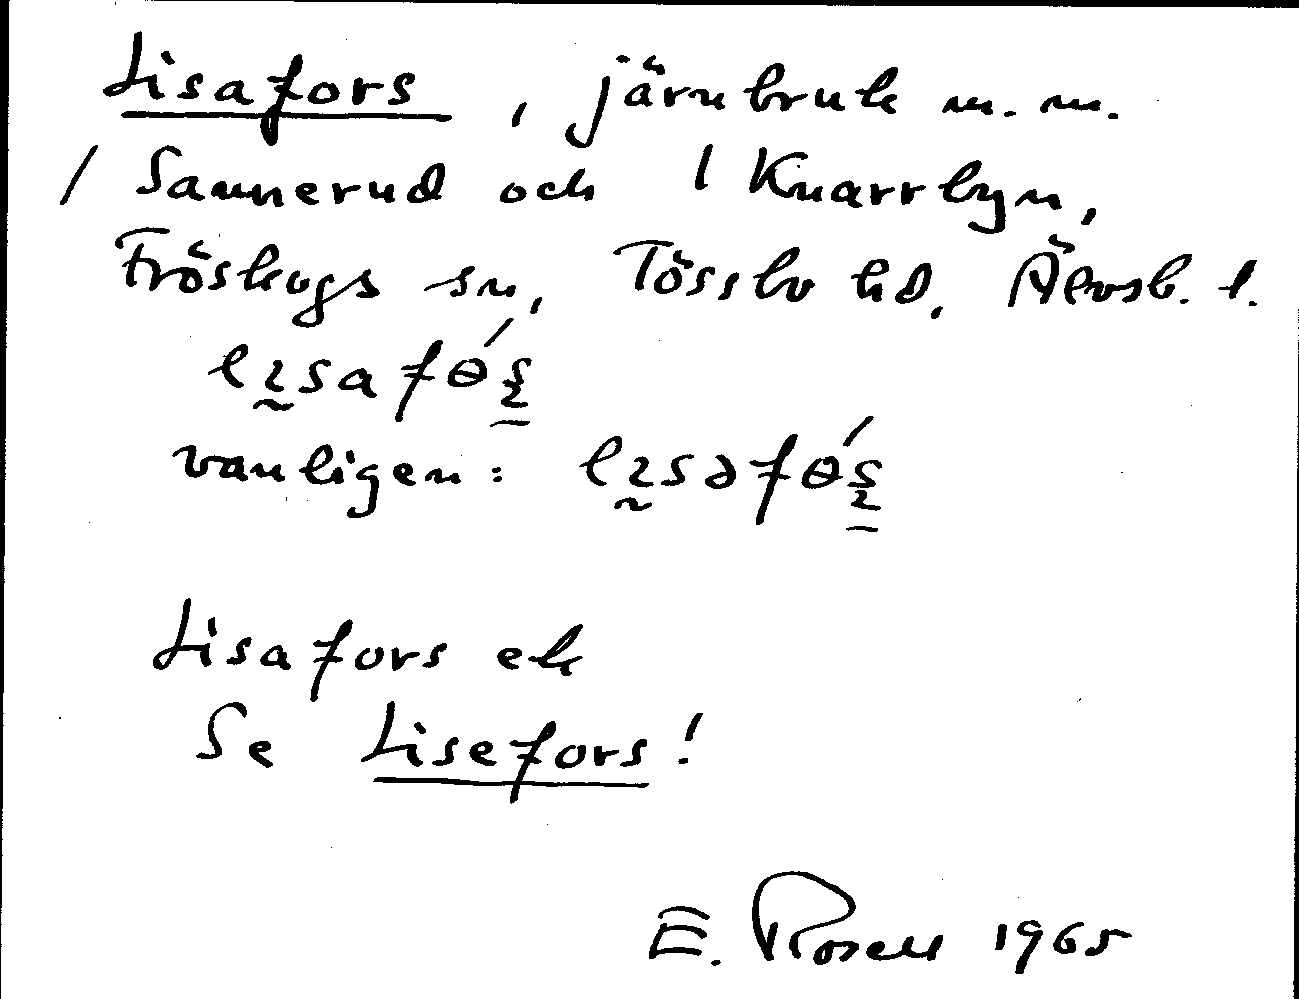 Lisafors, järnbruk m.m.
/ Sannerud och / Knarrbyn,
Fröskogs sn, Tössbo hd, Älvsb. l.
vanligen:
Lisafors ek
Se Lisefors!
E. Rosell 1965